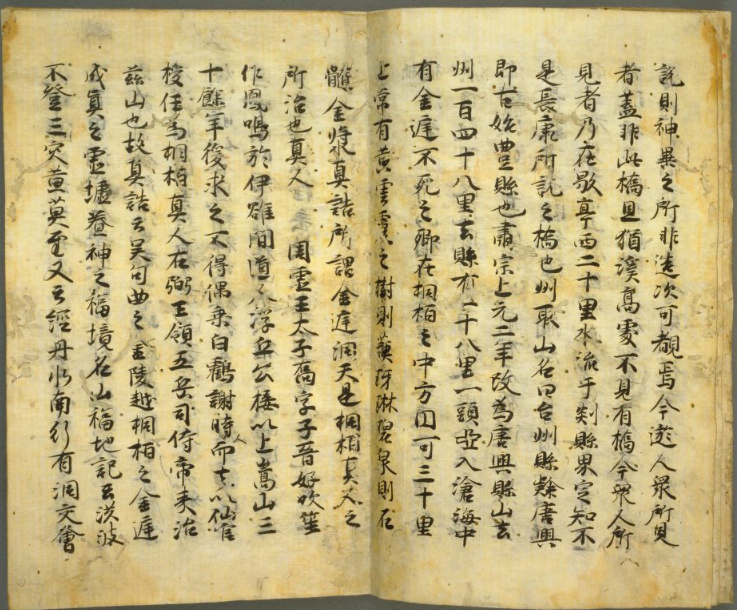 説則神異之所非造次可覩焉今遊人衆所見
者蓋非此橋且猶溪高處不見有橋今衆人所
見者乃在歇亭西二十里水流于剡縣界定知不
是長康所説之橋也州取山名曰台州縣隸唐興
即古始豊縣也肅宗上元二年改為唐興縣山去
州一百四十八里去縣有一十八里一頭亞入滄海中
有金庭不死之鄉在桐栢之中方四可三十里
上常有黄雲覆之樹則蘇玡琳碧泉則石
髓金漿真誥所謂金庭洞天是桐栢真人之
所治也真人 周靈王太子喬字子晋好吹笙
作鳳鳴於伊雒間道人浮丘公接以上嵩山三
十餘年後求之不得偶乗白鶴謝時人而去以仙官
授任為桐栢真人右弼王領五岳司侍帝来治
茲山也故真誥云吴句曲之金陵越桐栢之金庭
成真之霊墟養神之福境名山福地記云洪波
不登三灾莫至又云經丹水南行有洞交會